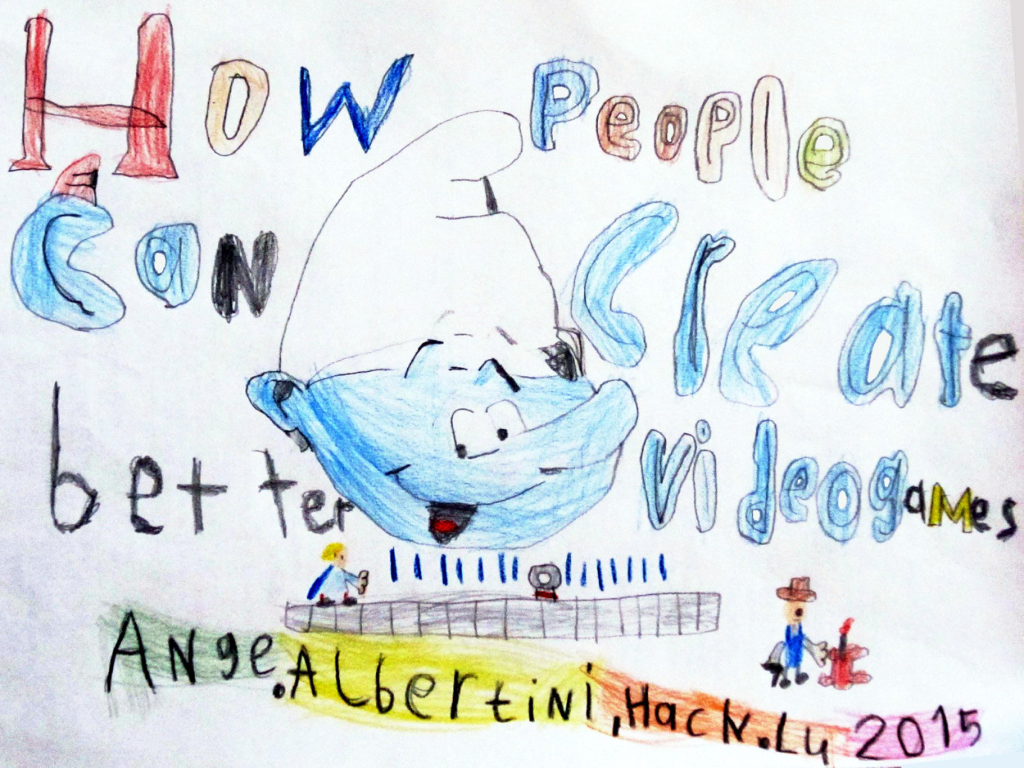 How People
Can Create
better videogames
Ange.Albertini,Hack.Lu 2015